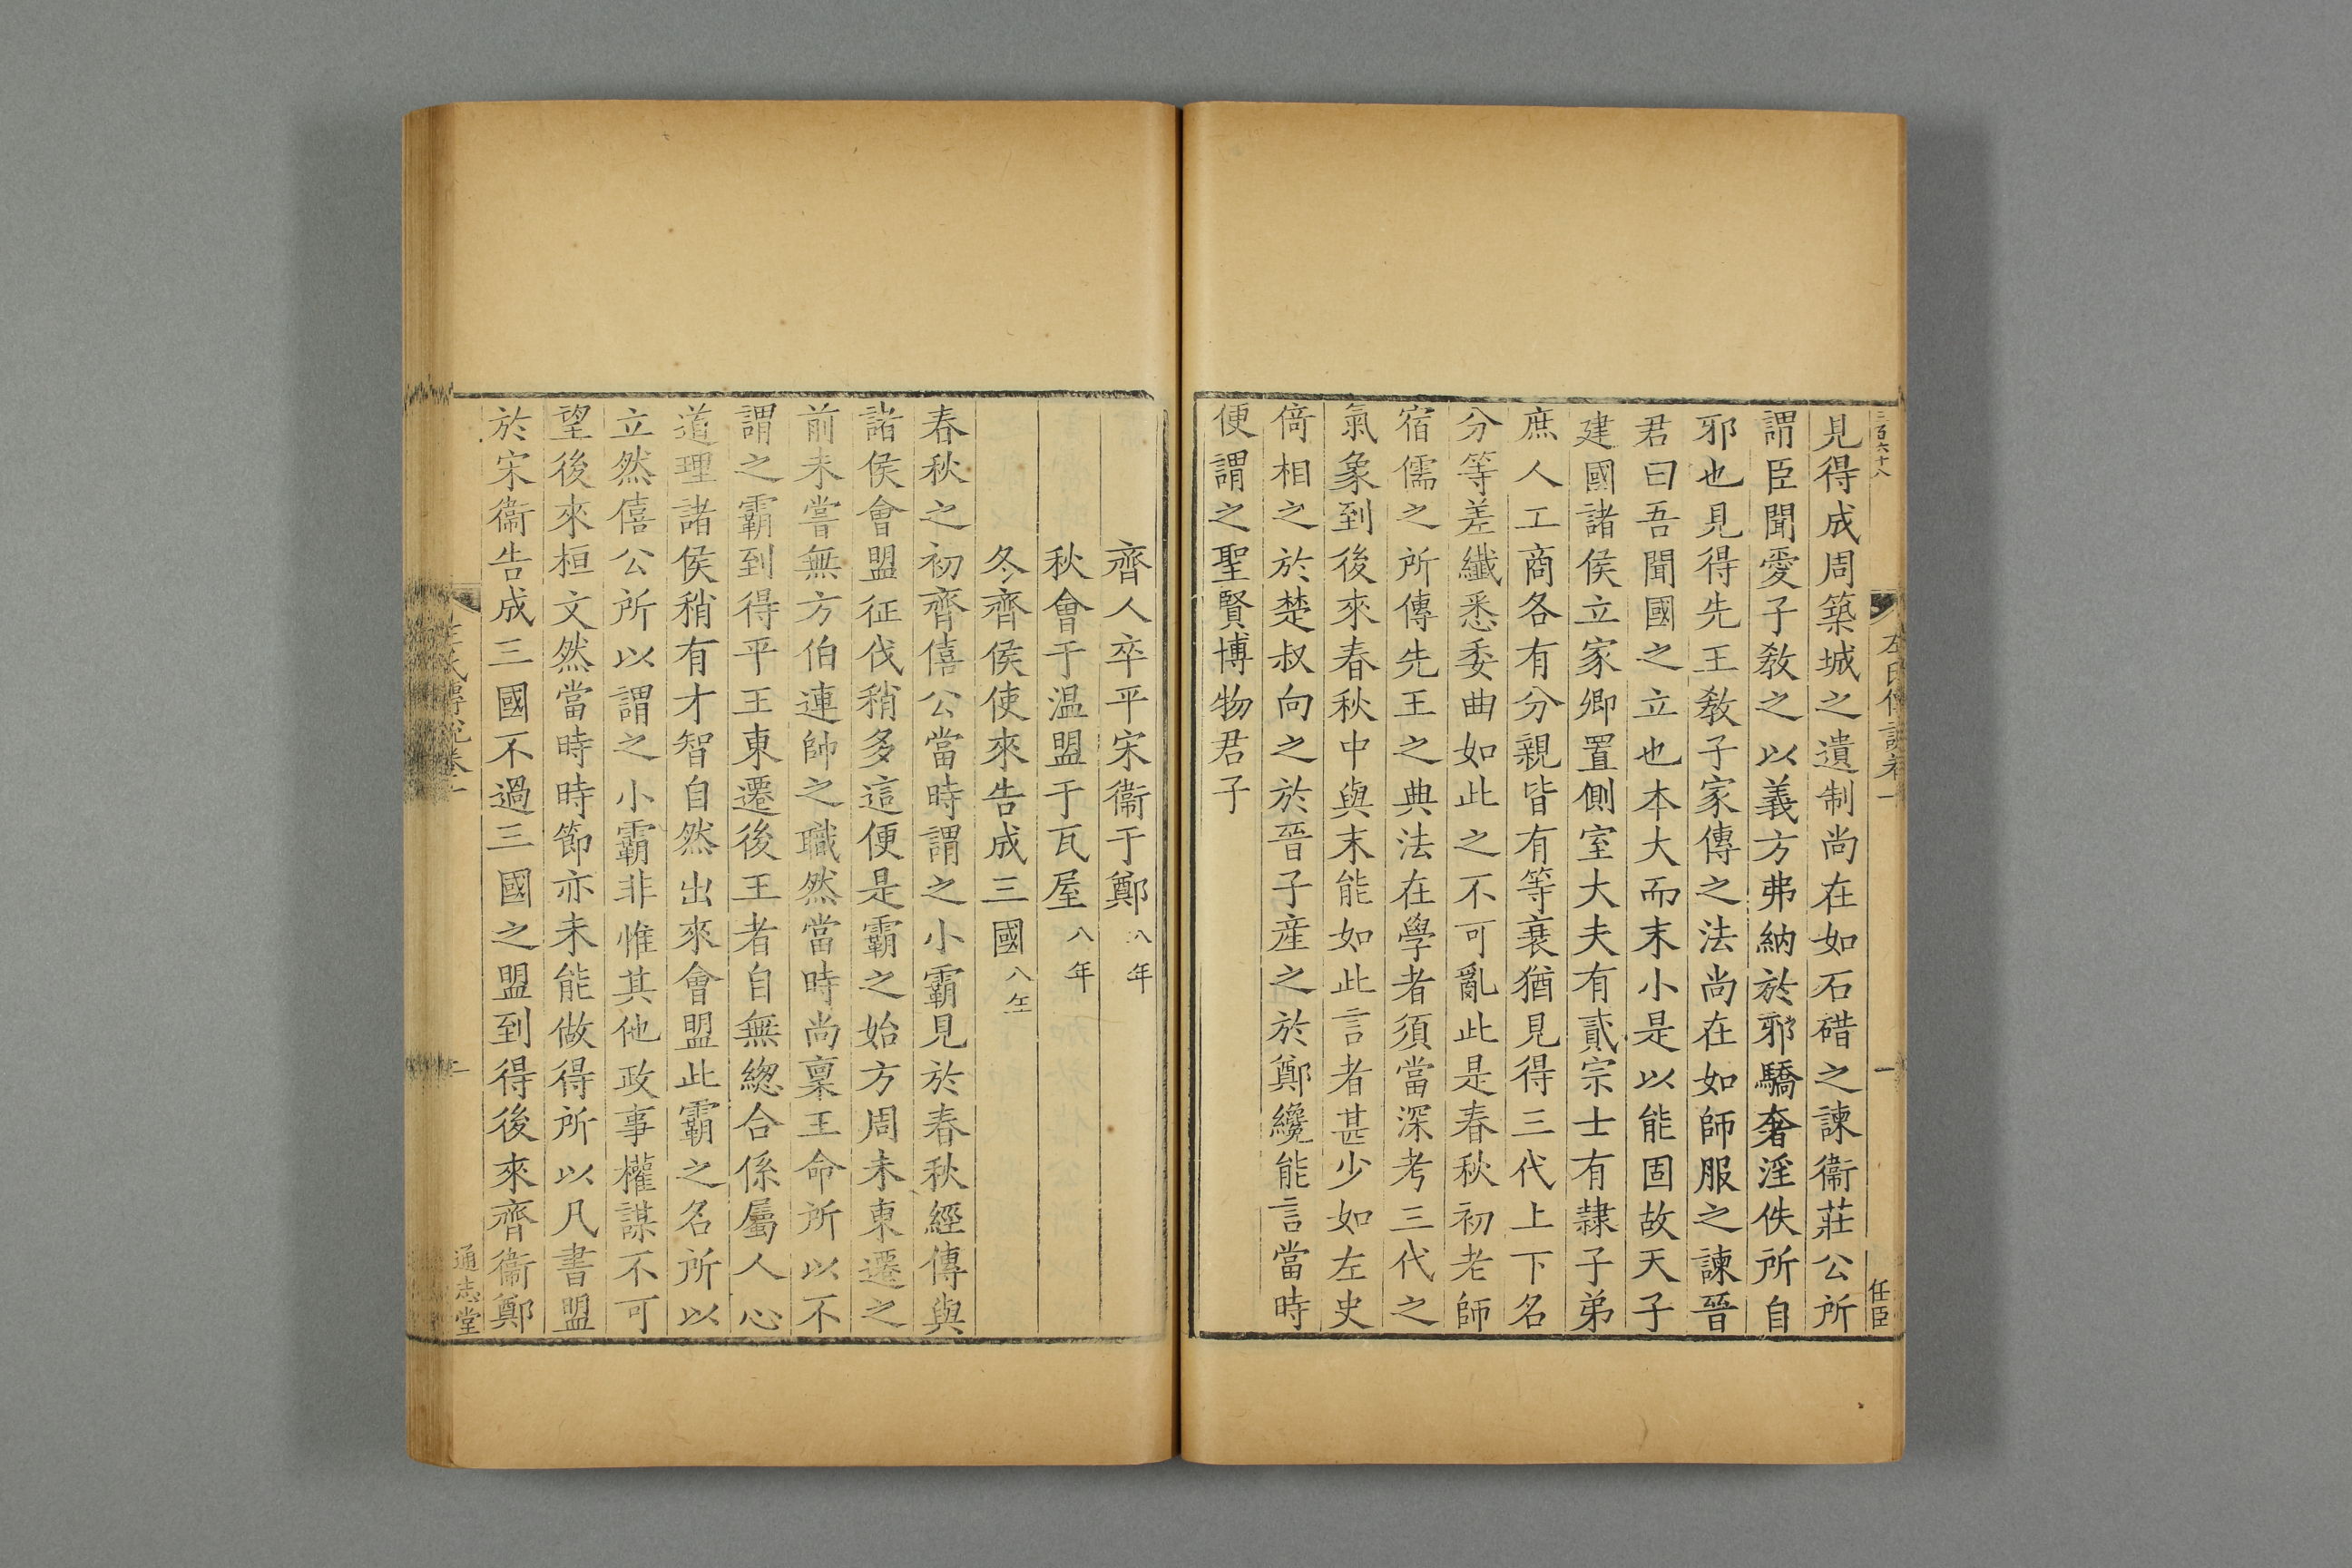 三百六十八
左氏傳說卷一
一
任臣
見得成周築城之遺制尚在如石碏之諫衞莊公所
謂臣聞愛子敎之以義方弗納於邪驕奢淫佚所自
邪也見得先王敎子家傳之法尚在如師服之諫晉
君曰吾聞國之立也本大而末小是以能固故天子
建國諸侯立家卿置側室大夫有貳宗士有隷子弟
庶人工商各有分親皆有等衰猶見得三代上下名
分等差纎悉委曲如此之不可亂此是春秋初老師
宿儒之所傳先王之典法在學者須當深考三代之
氣象到後來春秋中與末能如此言者甚少如左史
倚相之於楚叔向之於晉子産之於鄭纔能言當時
便謂之聖賢博物君子
齊人卒平宋衞于鄭八年
秋會于温盟于瓦屋八年
冬齊侯使來告成三國八年
春秋之初齊僖公當時謂之小霸見於春秋經傳與
諸侯會盟征伐稍多這便是霸之始方周未東遷之
前未嘗無方伯連帥之職然當時尚稟王命所以不
謂之霸到得平王東遷後王者自無緫合係屬人心
道理諸侯稍有才智自然出來會盟此霸之名所以
立然僖公所以謂之小霸非惟其他政事權謀不可
望後來桓文然當時時節亦未能做得所以凡書盟
於宋衞告成三國不過三國之盟到得後來齊衞鄭
左氏傳說卷一
二
通志堂